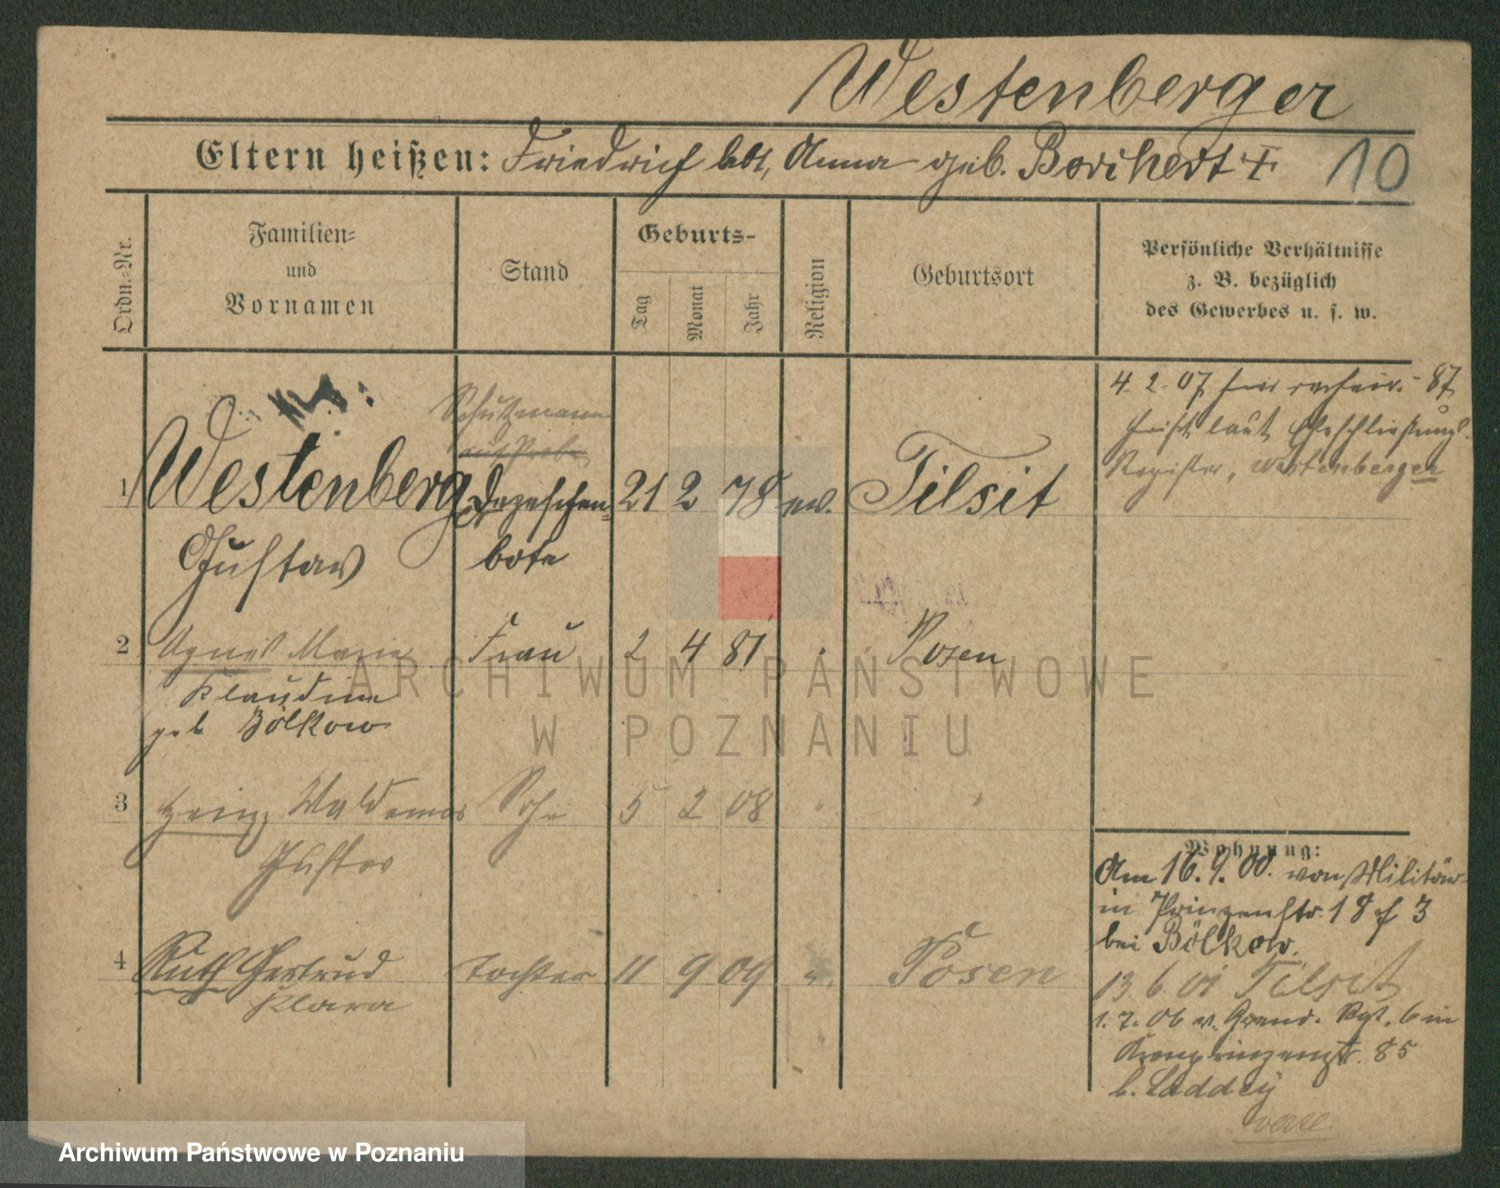 Westenberger
Eltern heißen: Friedrich lebt, Anna geb. Borchert +
10
Ordn.-Nr.
Familien- und Vornamen
Stand
Geburts-
Tag
Monat
Jahr
Religion
Geburtsort
Persönliche Verhältnisse
z. B. bezüglich
des Gewerbes u. s. w.
Schutzmann
auf Probe
1 Westenberg Depeschen- 21 2 78 ev. Tilsit
Gustav bote
4. 2. 07 87
laut Eheschließungs
Register, Westenberger
2 Agnes Marie Frau 2 4 81 Posen
Klaudine
geb. Bölkow
3 Heinz Waldemar Sohn 5 2 08
Gustav
4 Ruth Gertrud Tochter 11 9 09 Posen
Klara
Wohnung:
Am 16. 9. 00. von Militär
in Prinzenstr. 18 3
bei Bölkow.
13 6 01 Tilsit
1. 7. 06 v. Grend. Rgt. 6 in
Kronprinzenstr. 85
b. Laddey
ARCHIWUM PAŃSTWOWE
W POZNANIU
Archiwum Państwowe w Poznaniu